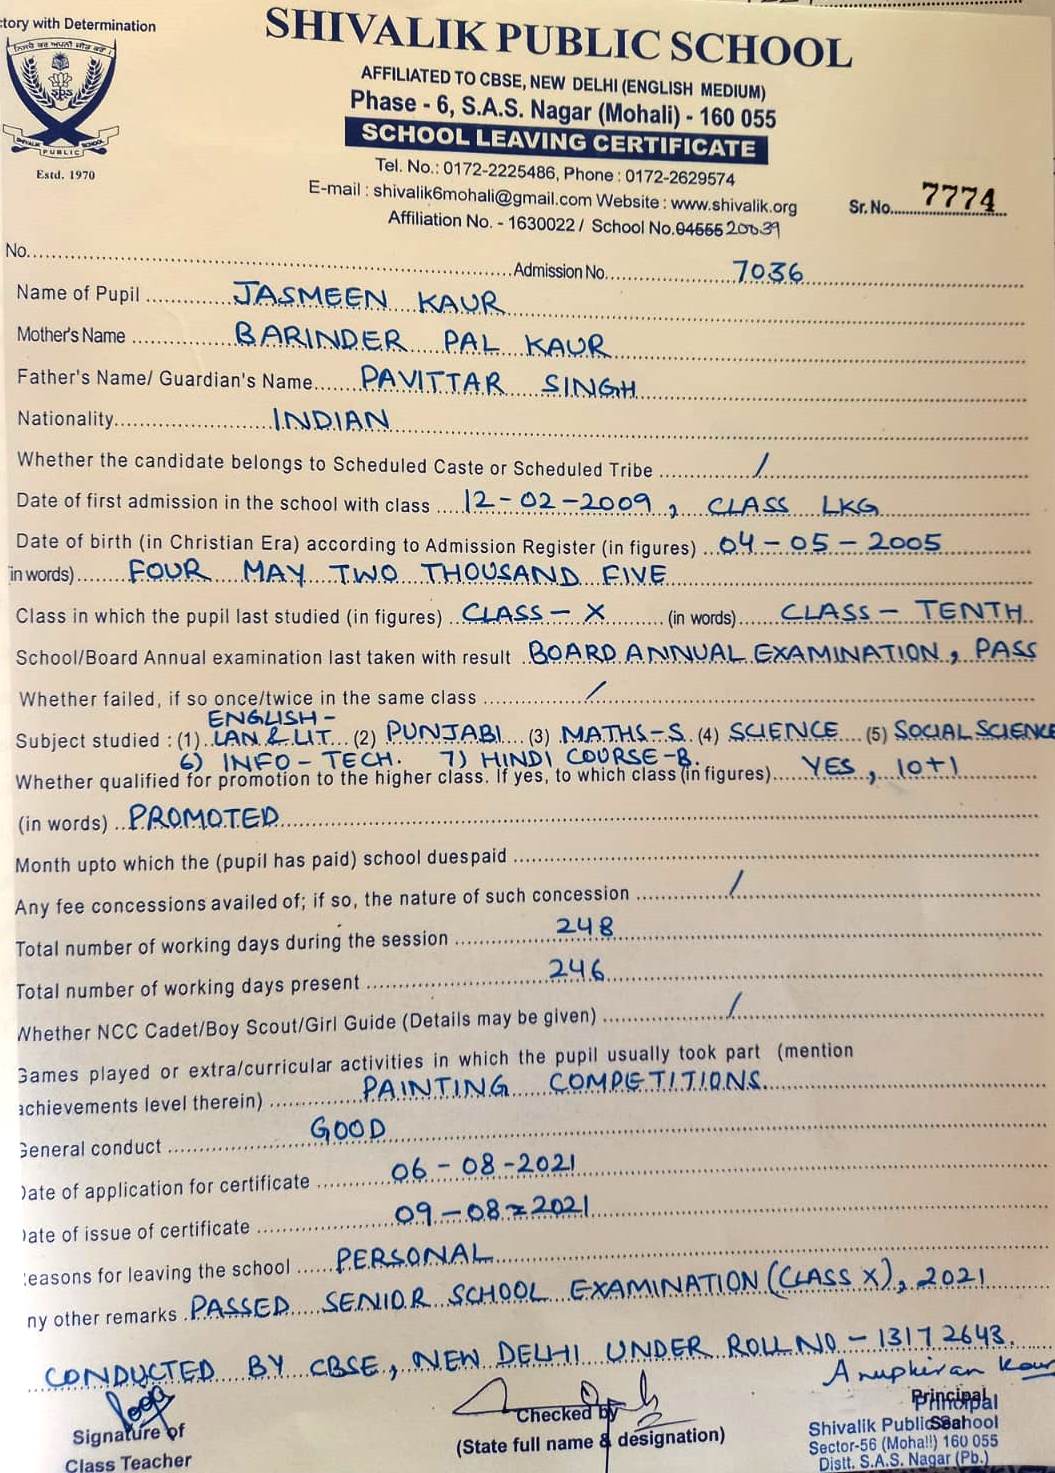 ctory with Determination
SHIVALIK PUBLIC SCHOOL
AFFILIATED TO CBSE, NEW DELHI (ENGLISH MEDIUM)
Phase - 6, S.A.S. Nagar (Mohali) - 160 055
SCHOOL LEAVING CERTIFICATE
SPS
SHIVALIK PUBLIC SCHOOL
Estd. 1970
Tel. No.: 0172-2225486, Phone : 0172-2629574
E-mail : shivalik6mohali@gmail.com Website : www.shivalik.org
Sr. No. 7774
Affiliation No. - 1630022 / School No. 04555 20039
No. Admission No. 7036
Name of Pupil JASMEEN KAUR
Mother's Name BARINDER PAL KAUR
Father's Name/ Guardian's Name PAVITTAR SINGH
Nationality INDIAN
Whether the candidate belongs to Scheduled Caste or Scheduled Tribe /
Date of first admission in the school with class 12-02-2009, CLASS LKG
Date of birth (in Christian Era) according to Admission Register (in figures) 04-05-2005
in words) FOUR MAY TWO THOUSAND FIVE
Class in which the pupil last studied (in figures) CLASS-X (in words) CLASS-TENTH
School/Board Annual examination last taken with result BOARD ANNUAL EXAMINATION, PASS
Whether failed, if so once/twice in the same class /
ENGLISH-
Subject studied : (1) LAN & LIT (2) PUNJABI (3) MATHS-S (4) SCIENCE (5) SOCIAL SCIENCE
6) INFO-TECH. 7) HINDI COURSE-B.
Whether qualified for promotion to the higher class. If yes, to which class (in figures) YES, 10+1
(in words) PROMOTED
Month upto which the (pupil has paid) school duespaid
Any fee concessions availed of; if so, the nature of such concession /
Total number of working days during the session 248
Total number of working days present 246
Whether NCC Cadet/Boy Scout/Girl Guide (Details may be given) /
Games played or extra/curricular activities in which the pupil usually took part (mention
achievements level therein) PAINTING COMPETITIONS
General conduct GOOD
Date of application for certificate 06-08-2021
Date of issue of certificate 09-08-2021
easons for leaving the school PERSONAL
ny other remarks PASSED SENIOR SCHOOL EXAMINATION (CLASS X), 2021
CONDUCTED BY CBSE, NEW DELHI UNDER ROLL NO - 13172643.
Anupkiran Kaur
Signature of
Class Teacher
Checked by
(State full name & designation)
Principal
Shivalik Public School
Sector-56 (Mohali) 160 055
Distt. S.A.S. Nagar (Pb.)